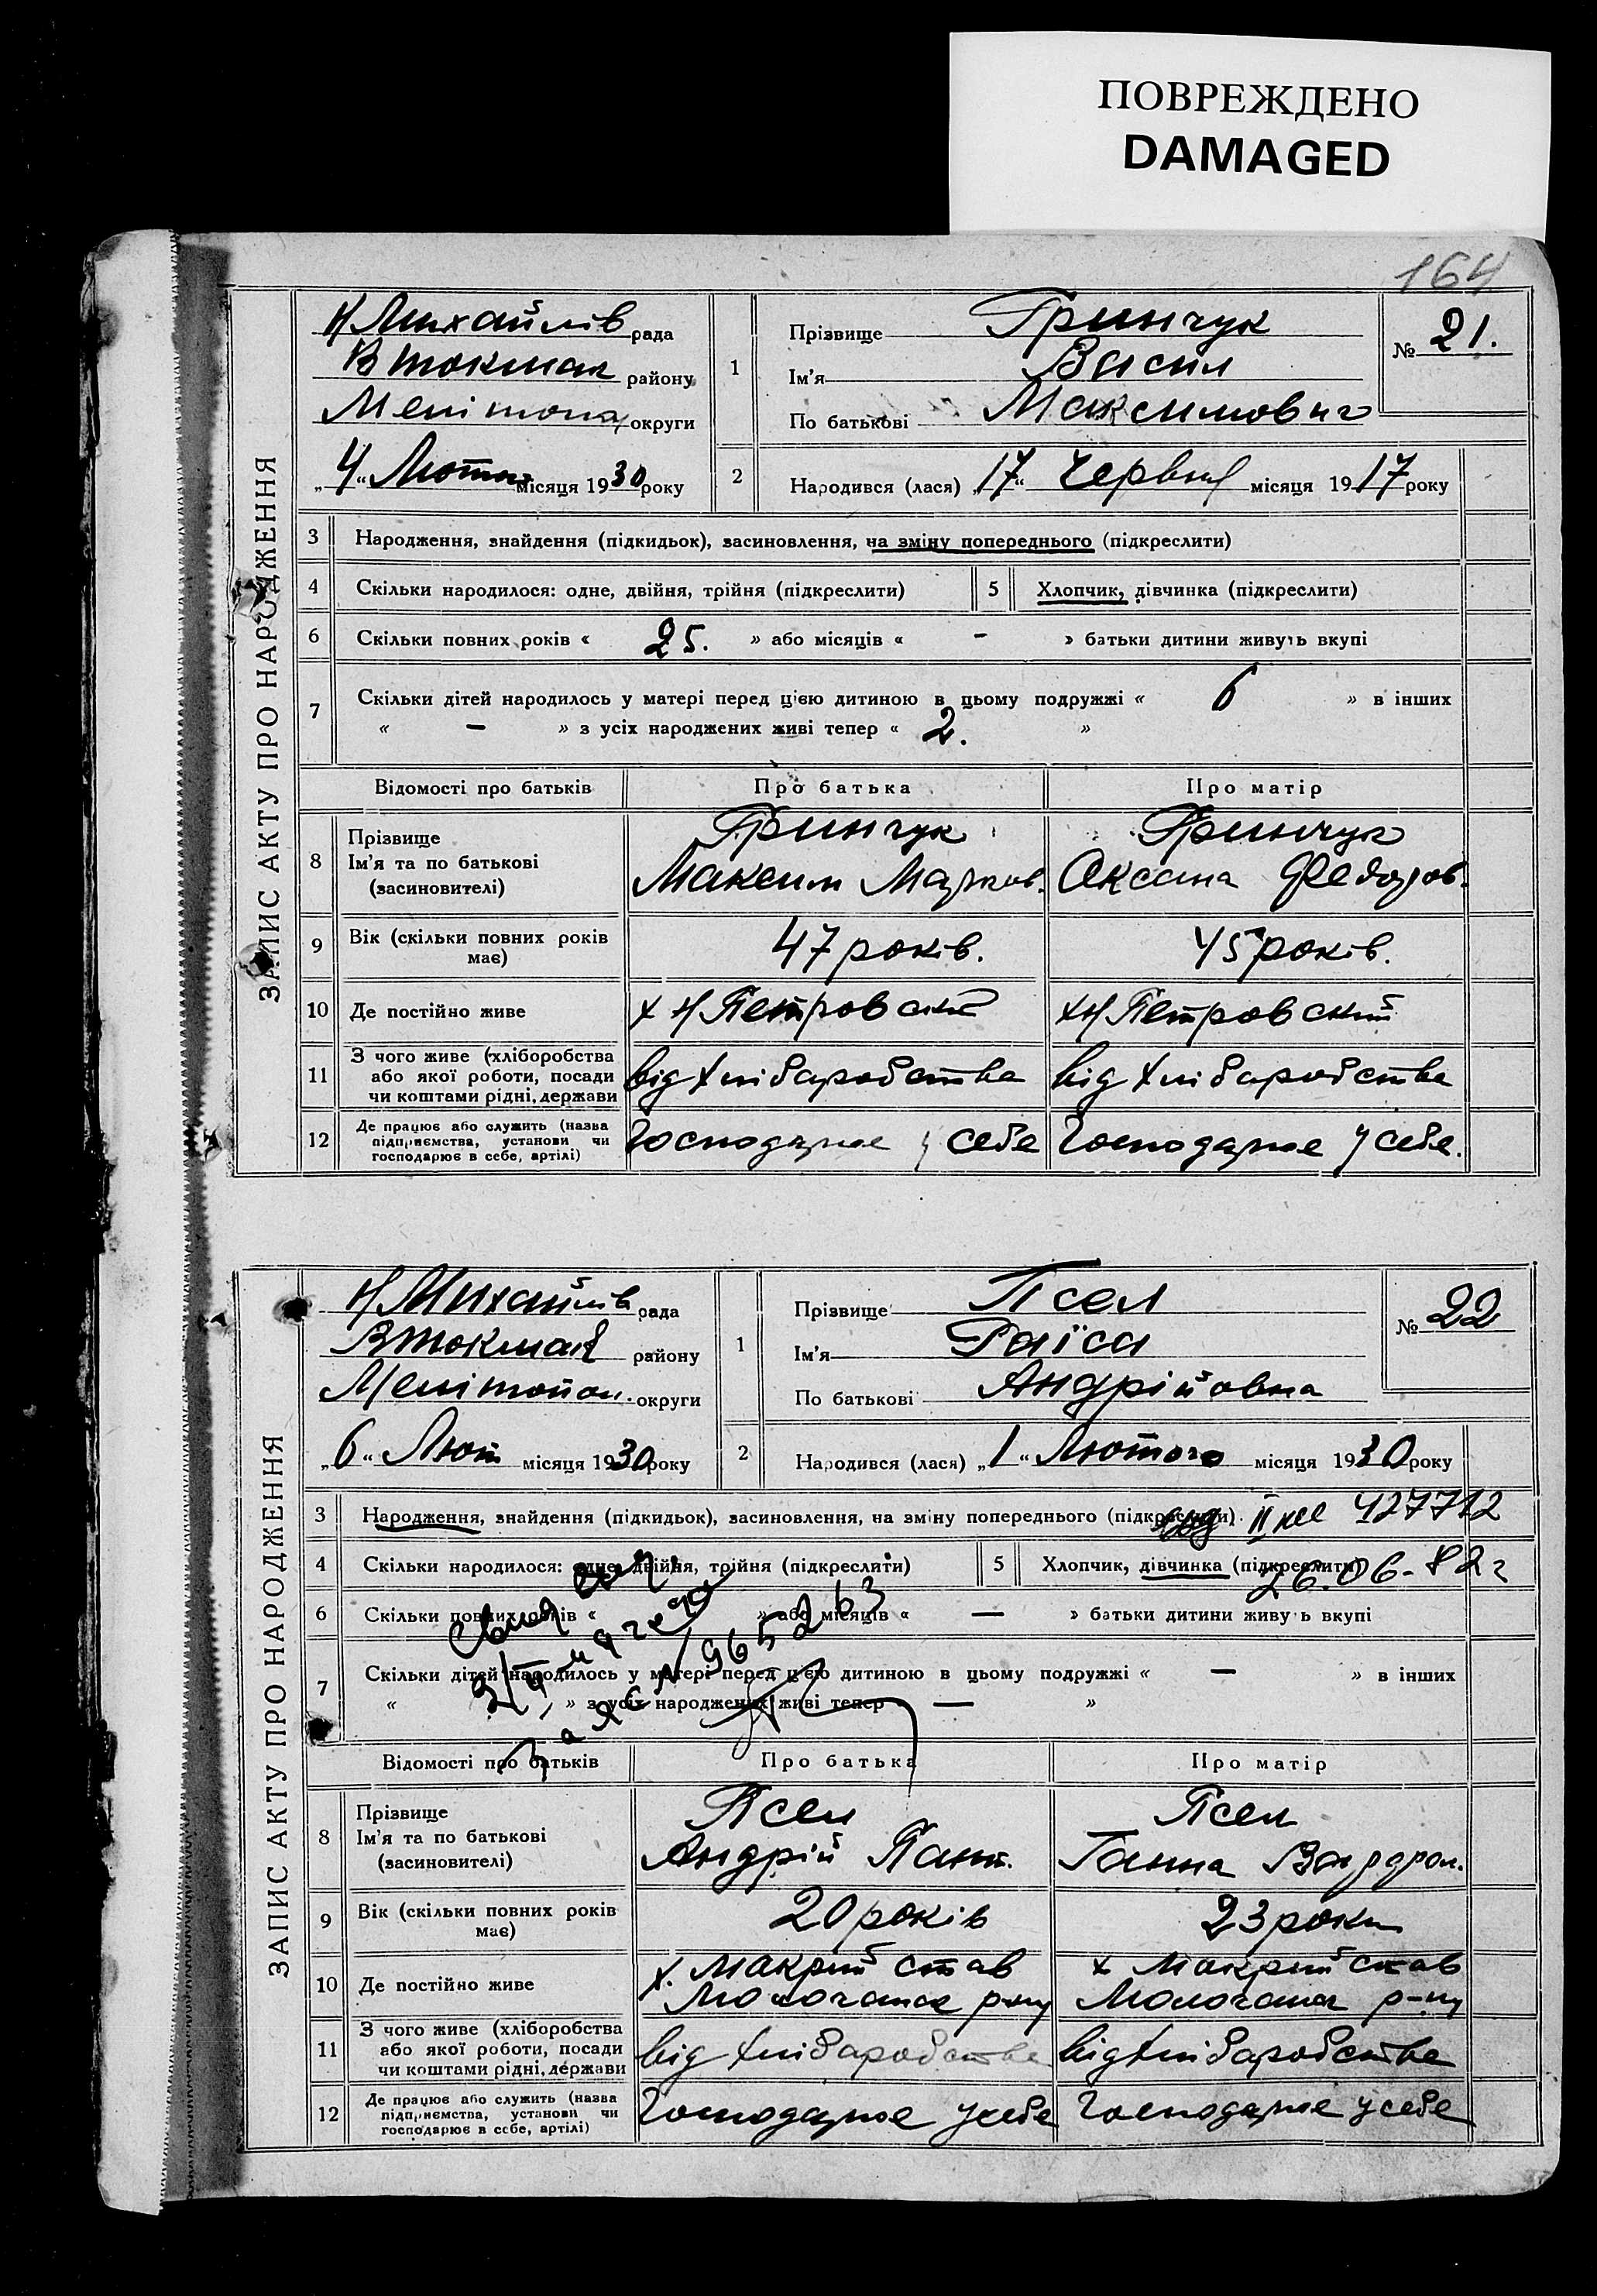 ПОВРЕЖДЕНО
DAMAGED
164
ЗАПИС АКТУ ПРО НАРОДЖЕННЯ
Н Михайлів рада
В Токмак району
Мелітопол округи
„4“ Лютого місяця 1930 року
1 Прізвище Гринчук
Ім'я Васил
По батькові Максимович
№ 21.
2 Народився (лася) „17“ Червня місяця 1917 року
3 Народження, знайдення (підкидьок), засиновлення, на зміну попереднього (підкреслити)
4 Скільки народилося: одне, двійня, трійня (підкреслити) 5 Хлопчик, дівчинка (підкреслити)
6 Скільки повних років « 25. » або місяців « – » батьки дитини живуть вкупі
7 Скільки дітей народилось у матері перед цією дитиною в цьому подружжі « 6 » в інших
« – » з усіх народжених живі тепер « 2. »
Відомості про батьків Про батька Про матір
8 Прізвище Ім'я та по батькові (засиновителі)
Гринчук Гринчук
Максим Марков. Оксана Федоров.
9 Вік (скільки повних років має) 47 років. 45 років.
10 Де постійно живе х Н Петровский х Н Петровский
11 З чого живе (хліборобства або якої роботи, посади чи коштами рідні, держави від хліборобства від хліборобства
12 Де працює або служить (назва підприємства, установи чи господарює в себе, артілі) Господарює у себе Господарює у себе.
ЗАПИС АКТУ ПРО НАРОДЖЕННЯ
Н Михайлів рада
В Токмак району
Мелітопол. округи
„6“ Лют місяця 1930 року
1 Прізвище Псел
Ім'я Раїса
По батькові Андрійовна
№ 22
2 Народився (лася) „1“ Лютого місяця 1930 року
3 Народження, знайдення (підкидьок), засиновлення, на зміну попереднього (підкреслити)
II 427712
4 Скільки народилося: одне, двійня, трійня (підкреслити) 5 Хлопчик, дівчинка (підкреслити)
26.06-82 г
6 Скільки повних років « » або місяців « — » батьки дитини живуть вкупі
7 Скільки дітей народилось у матері перед цією дитиною в цьому подружжі « — » в інших
« » з усіх народжених живі тепер — »
№ 965263
Відомості про батьків Про батька Про матір
8 Прізвище Ім'я та по батькові (засиновителі)
Псел Псел
Андрій Пант. Ганна
9 Вік (скільки повних років має) 20 років 23 роки
10 Де постійно живе х. Мокрий став х Мокрий став
Молочанск р-ну Молочанск р-ну
11 З чого живе (хліборобства або якої роботи, посади чи коштами рідні, держави від хліборобства від хліборобства
12 Де працює або служить (назва підприємства, установи чи господарює в себе, артілі) Господарює у себе Господарює у себе